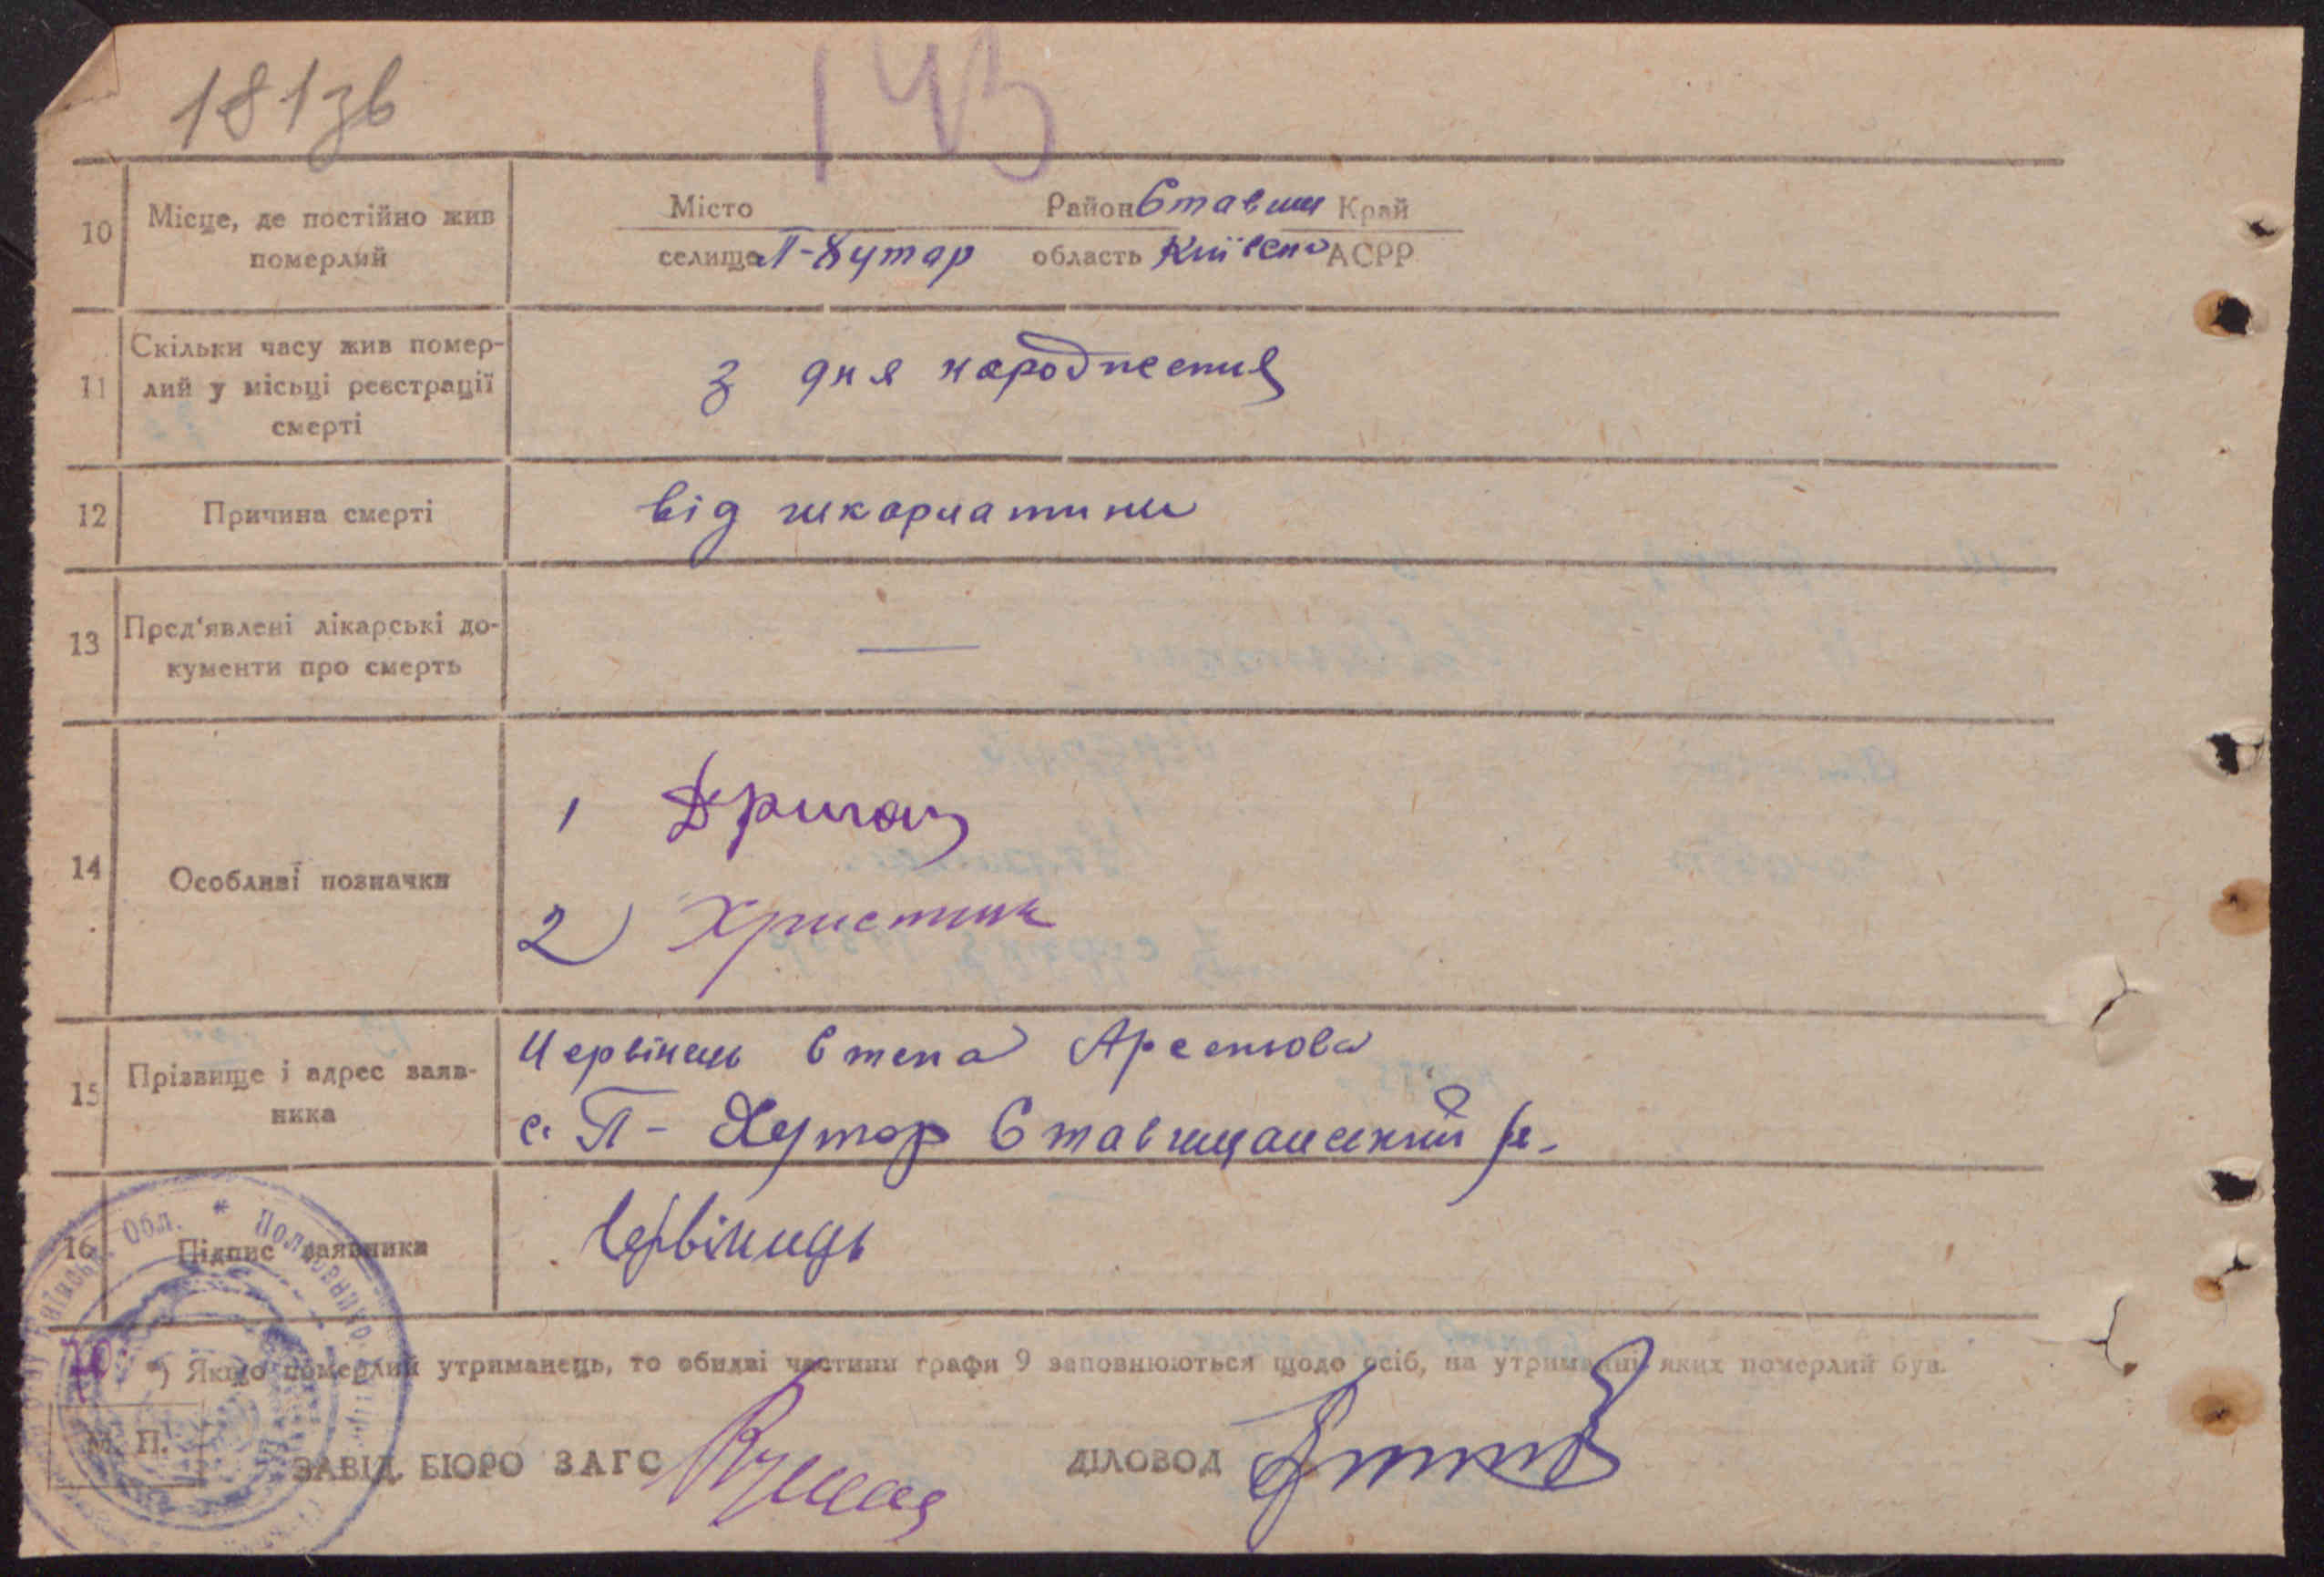 181зв
143
10 Місце, де постійно жив померлий
Місто Район Ставищ Край
селище П-Хутар область Київськ АСРР
11 Скільки часу жив помер-
лий у місьці реєстрації
смерті
з дня народження
12 Причина смерті
від шкарлатини
13 Пред'явлені лікарські до-
кументи про смерть
—
14 Особливі позначки
1 Дригац
2) Христинк
15 Прізвище і адрес заяв-
ника
Червінець Степа Арсентова
с. П- Хутор Ставищанский р.
16 Підпис заявника
Червінць
*) Якщо померлий утриманець, то обидві частини графи 9 заповнюються щодо осіб, на утриманні яких померлий був.
М. П.
ЗАВІД. БЮРО ЗАГС
ДІЛОВОД